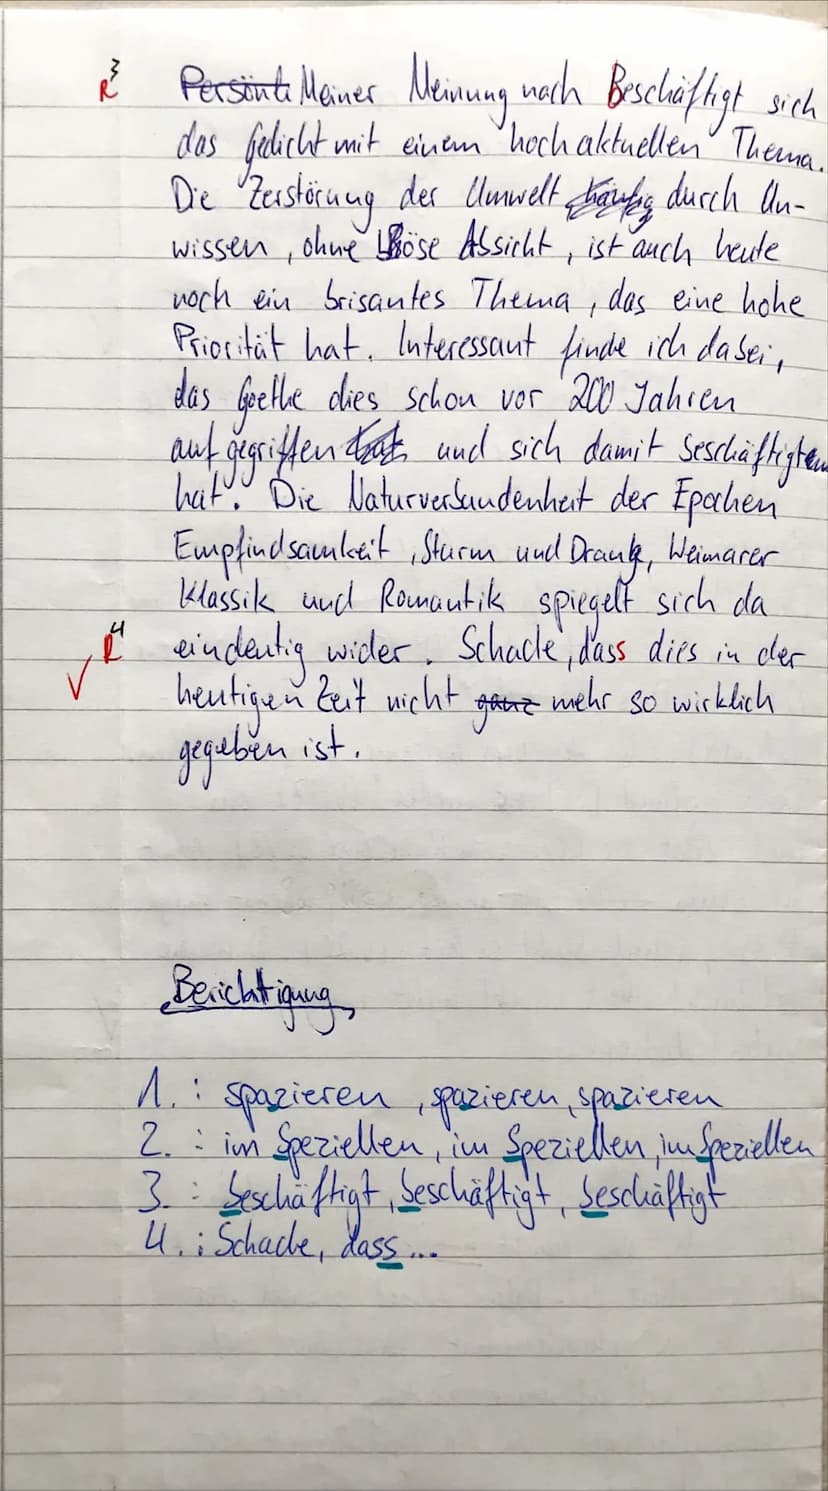 R³ Persönli Meiner Meinung nach Beschäftigt sich
das Gedicht mit einem hochaktuellen Thema.
Die Zerstörung der Umwelt durch Un-
wissen, ohne Böse Absicht, ist auch heute
noch ein brisantes Thema, das eine hohe
Priorität hat. Interessant finde ich dabei,
das Goethe dies schon vor 200 Jahren
aufgegriffen hat und sich damit beschäftigt
hat. Die Naturverbundenheit der Epochen
Empfindsamkeit, Sturm und Drang, Weimarer
Klassik und Romantik spiegelt sich da
R⁴ eindeutig wider. Schade, dass dies in der
✓ heutigen Zeit nicht ganz mehr so wirklich
gegeben ist.
Berichtigung
1. : spazieren, spazieren, spazieren
2. : im Speziellen, im Speziellen, im Speziellen
3. : beschäftigt, beschäftigt, beschäftigt
4. : Schade, dass...